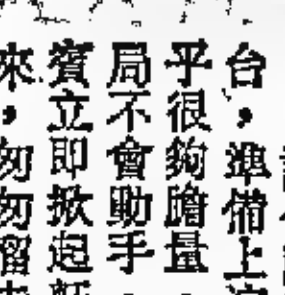 台，準備上
乎很夠膽量
局不會動手
賓立即掀起
來，匆匆留